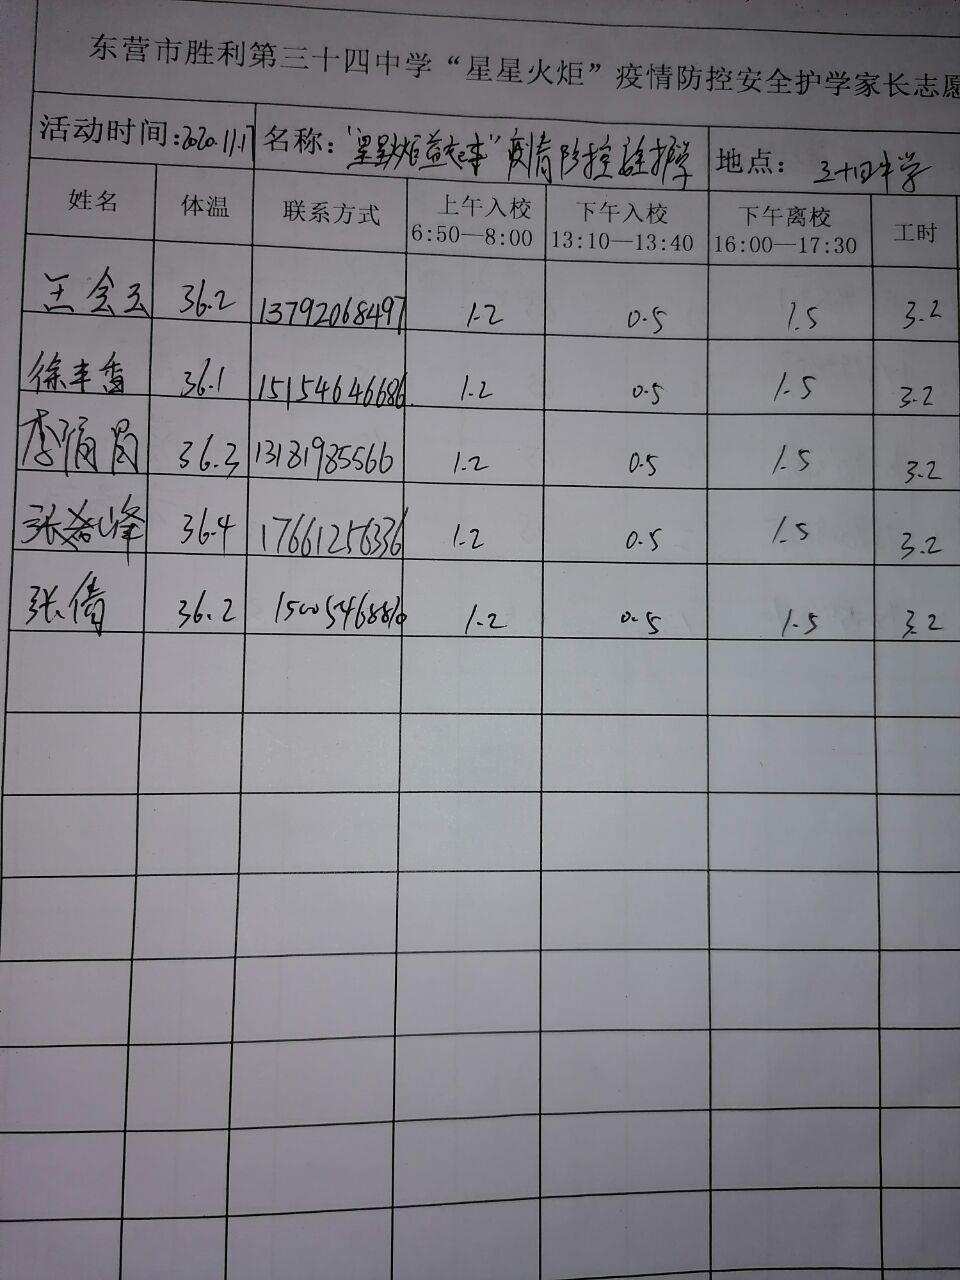 东营市胜利第三十四中学“星星火炬”疫情防控安全护学家长志愿
活动时间:2020.11.17 名称: “星星火炬益起来”疫情防控安全护学 地点: 三十四中学
姓名 体温 联系方式 上午入校 6:50—8:00 下午入校 13:10—13:40 下午离校 16:00—17:30 工时
王会云 36.2 13792068497 1.2 0.5 1.5 3.2
徐丰香 36.1 15154646686 1.2 0.5 1.5 3.2
李 36.3 13181985566 1.2 0.5 1.5 3.2
张 峰 36.4 17661256336 1.2 0.5 1.5 3.2
张倩 36.2 1.2 0.5 1.5 3.2